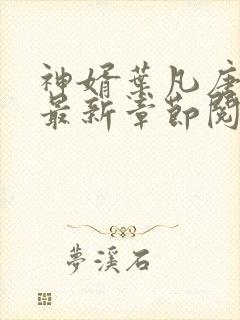 神婿葉凡唐
最新章節閱
夢溪石